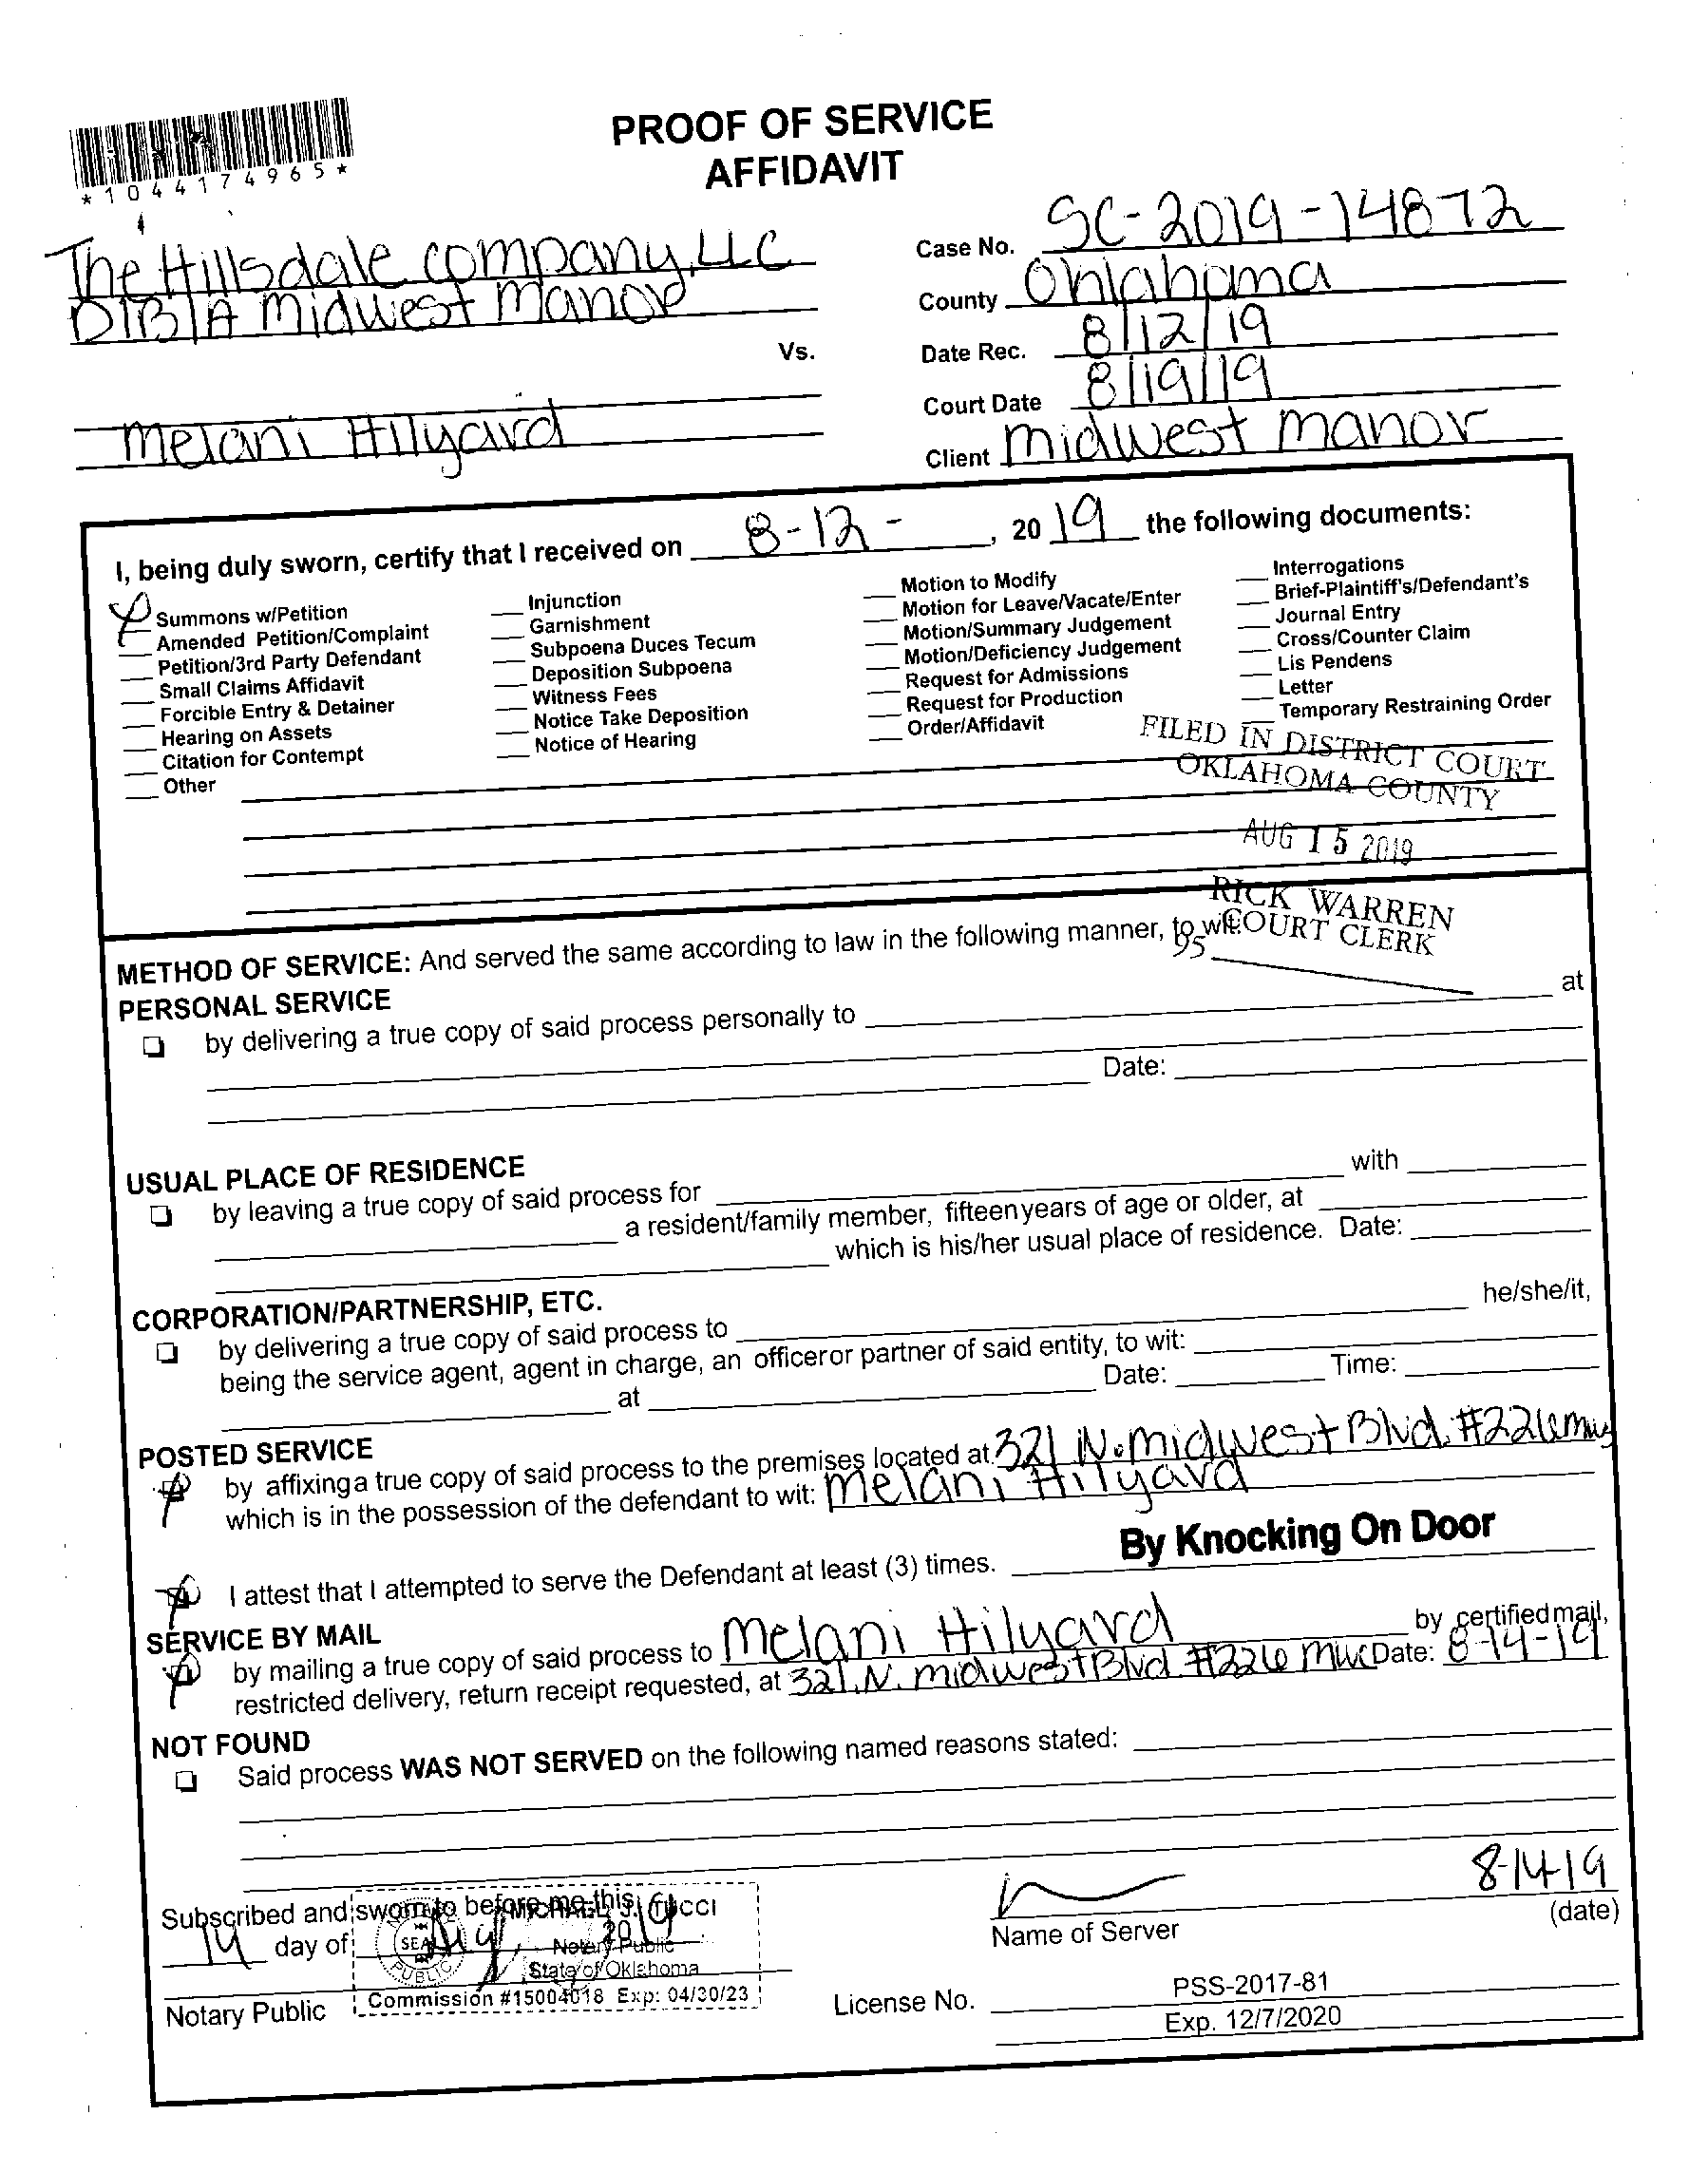 PROOF OF SERVICE
AFFIDAVIT
*1044174965*
The Hillsdale company, LLC
D/B/A Midwest Manor
Vs.
Melani Hilyard
Case No. SC-2019-14872
County Oklahoma
Date Rec. 8/12/19
Court Date 8/19/19
Client Midwest Manor
I, being duly sworn, certify that I received on 8-12-, 20 19 the following documents:
Summons w/Petition
Amended Petition/Complaint
Petition/3rd Party Defendant
Small Claims Affidavit
Forcible Entry & Detainer
Hearing on Assets
Citation for Contempt
Other
Injunction
Garnishment
Subpoena Duces Tecum
Deposition Subpoena
Witness Fees
Notice Take Deposition
Notice of Hearing
Motion to Modify
Motion for Leave/Vacate/Enter
Motion/Summary Judgement
Motion/Deficiency Judgement
Request for Admissions
Request for Production
Order/Affidavit
Interrogations
Brief-Plaintiff's/Defendant's
Journal Entry
Cross/Counter Claim
Lis Pendens
Letter
Temporary Restraining Order
FILED IN DISTRICT COURT
OKLAHOMA COUNTY
AUG 15 2019
RICK WARREN
COURT CLERK
95
METHOD OF SERVICE: And served the same according to law in the following manner, to wit:
PERSONAL SERVICE
by delivering a true copy of said process personally to at
Date:
USUAL PLACE OF RESIDENCE
by leaving a true copy of said process for with
a resident/family member, fifteenyears of age or older, at
which is his/her usual place of residence. Date:
CORPORATION/PARTNERSHIP, ETC.
by delivering a true copy of said process to he/she/it,
being the service agent, agent in charge, an officeror partner of said entity, to wit:
at Date: Time:
POSTED SERVICE
by affixinga true copy of said process to the premises located at 321 N. Midwest Blvd. #226 
which is in the possession of the defendant to wit: Melani Hilyard
By Knocking On Door
I attest that I attempted to serve the Defendant at least (3) times.
SERVICE BY MAIL
by mailing a true copy of said process to Melani Hilyard by certified mail,
restricted delivery, return receipt requested, at 321. N. Midwest Blvd #226 MWC Date: 8-14-19
NOT FOUND
Said process WAS NOT SERVED on the following named reasons stated:
Subscribed and sworn to before me this
14 day of Aug, 2019
MICHAEL J. TUCCI
Notary Public
State of Oklahoma
Commission #15004018 Exp: 04/30/23
SEAL
PUBLIC
Notary Public
8-14-19
Name of Server (date)
License No. PSS-2017-81
Exp. 12/7/2020